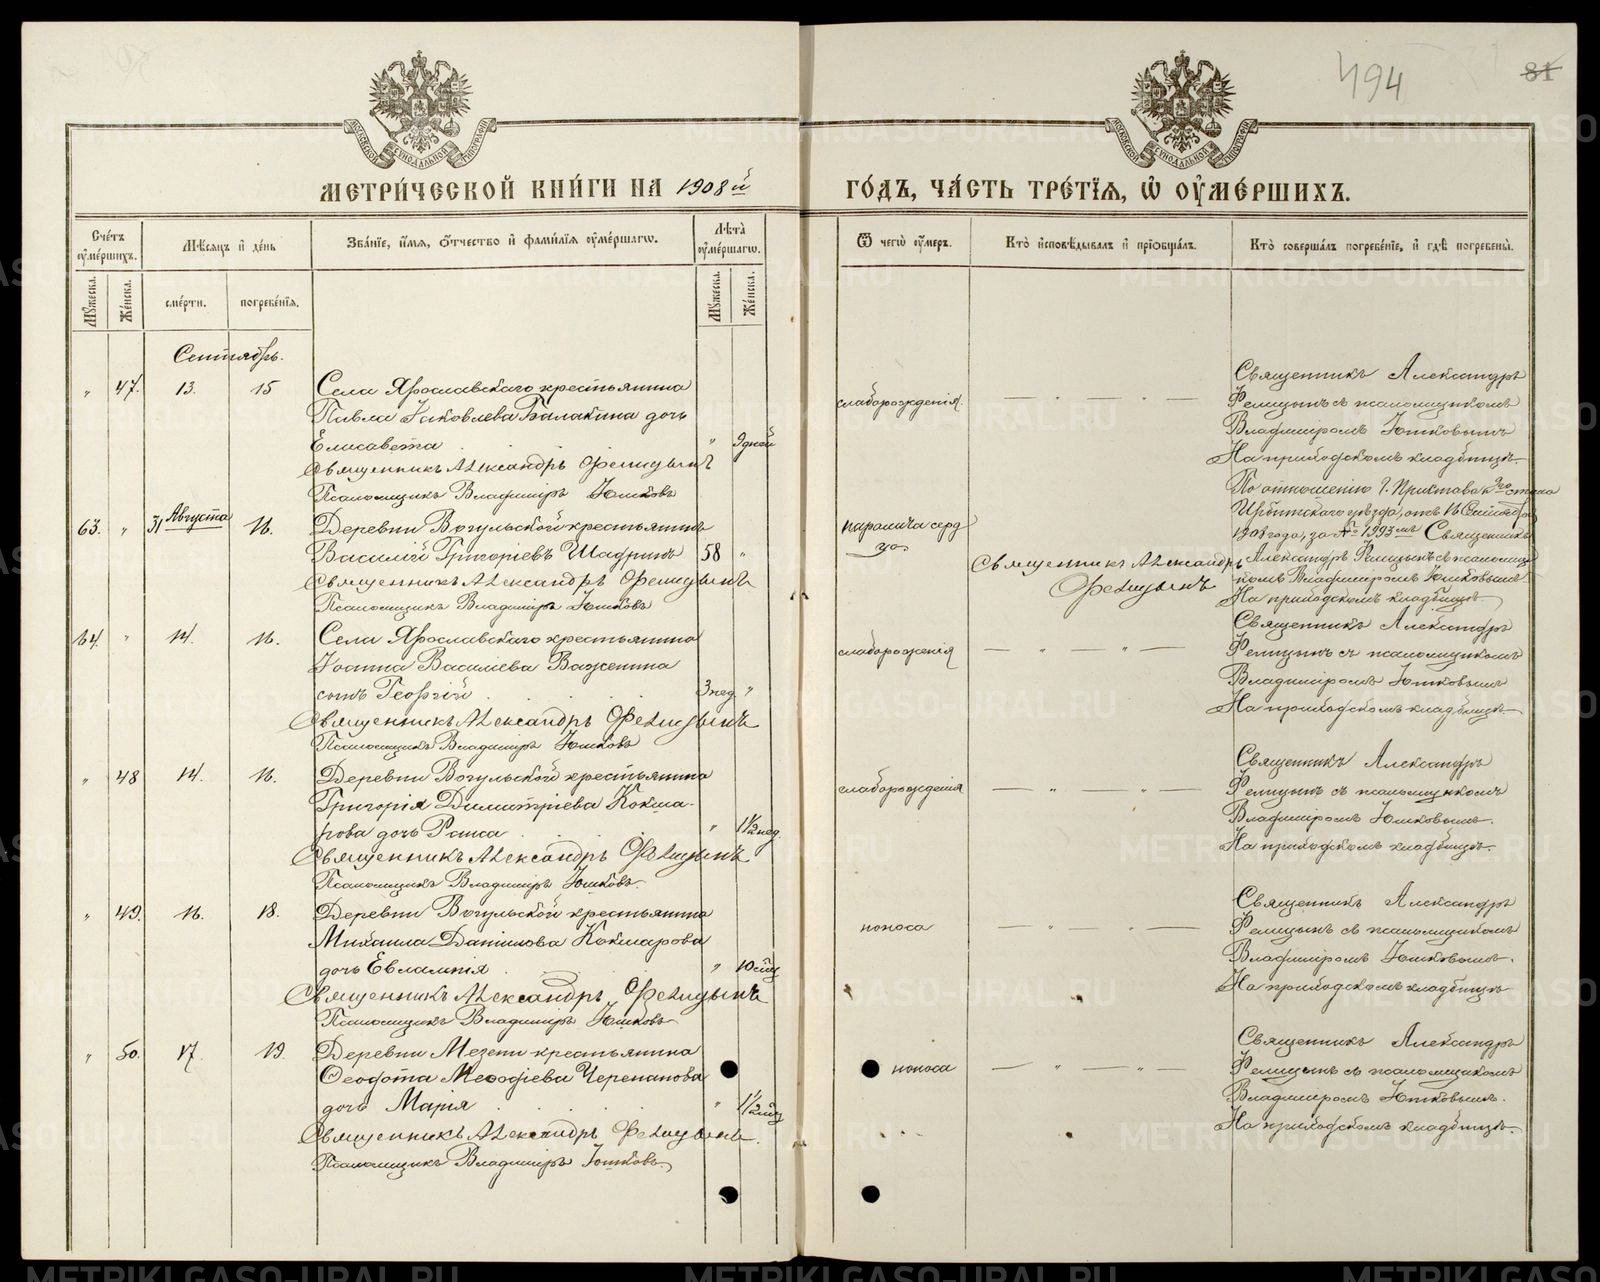 494
81
МОСКОВСКОЙ СѴНОДАЛЬНОЙ ТИПОГРАФІИ
МОСКОВСКОЙ СѴНОДАЛЬНОЙ ТИПОГРАФІИ
МЕТРИ́ЧЕСКОЙ КНИ́ГИ НА 1908й
ГО́ДЪ, ЧА́СТЬ ТРЕ́ТЇЯ, Ѽ ОУ҆МЕ́РШИХЪ.
Сче́тъ оу҆ме́ршихъ.
Мѣ́сяцъ и҆ де́нь
Зва́нїе, и҆́мя, ѻ҆́тчество и҆ фами́лїя оу҆ме́ршагѡ.
Лѣ́та оу҆ме́ршагѡ.
Ѿ чегѡ̀ оу҆́меръ.
Кто̀ и҆сповѣ́дывалъ и҆ прїѡбща́лъ.
Кто̀ соверша́лъ погребе́нїе, и҆ гдѣ̀ погребены̀.
Мꙋ́жеска.
Же́нска.
сме́рти.
погребе́нїя.
Мꙋ́жеска.
Же́нска.
Сентябрь.
" 47. 13. 15 Села Ярославскаго крестьянина
Павла Іаковлева Балакина дочь
Елисавета " 9 дней
Священникъ Александръ Фелицынъ
Псаломщикъ Владиміръ Юшковъ
слаборожденія.
Священникъ Александръ
Фелицынъ съ псаломщикомъ
Владиміромъ Юшковымъ
На приходскомъ кладбищѣ.
63. " 31 Августа 16. Деревни Вогульской крестьянинъ
Василій Григоріевъ Шадринъ 58 "
Священникъ Александръ Фелицынъ
Псаломщикъ Владиміръ Юшковъ
паралича серд
ца
Священникъ Александръ
Фелицынъ
По отношенію Г. Пристава 2го стана
Ирбитскаго уѣзда, отъ 16 Сентября
1908 года, за № 1993мъ Священникъ
Александръ Фелицынъ съ псаломщи
комъ Владиміромъ Юшковымъ
На приходскомъ кладбищѣ.
64. " 14. 16. Села Ярославскаго крестьянина
Іоанна Василіева Важенина
сынъ Георгій 3 нед. "
Священникъ Александръ Фелицынъ
Псаломщикъ Владиміръ Юшковъ
слаборожденія
Священникъ Александръ
Фелицынъ съ псаломщикомъ
Владиміромъ Юшковымъ
На приходскомъ кладбищѣ.
" 48 14. 16. Деревни Вогульской крестьянина
Григорія Димитріева Кокша-
рова дочь Раиса " 1 1/2 нед.
Священникъ Александръ Фелицынъ
Псаломщикъ Владиміръ Юшковъ.
слаборожденія
Священникъ Александръ
Фелицынъ съ псаломщикомъ
Владиміромъ Юшковымъ.
На приходскомъ кладбищѣ.
" 49. 16. 18. Деревни Вогульской крестьянина
Михаила Данилова Кокшарова
дочь Евлампія " 10 мѣц
Священникъ Александръ Фелицынъ
Псаломщикъ Владиміръ Юшковъ
поноса
Священникъ Александръ
Фелицынъ съ псаломщикомъ
Владиміромъ Юшковымъ.
На приходскомъ кладбищѣ
" 50. 17. 19. Деревни Мезени крестьянина
Ѳеодота Меѳодіева Черепанова
дочь Марія " 1 1/2 мѣц
Священникъ Александръ Фелицынъ.
Псаломщикъ Владиміръ Юшковъ
поноса
Священникъ Александръ
Фелицынъ съ псаломщикомъ
Владиміромъ Юшковымъ.
На приходскомъ кладбищѣ.
METRIKI.GASO-URAL.RU